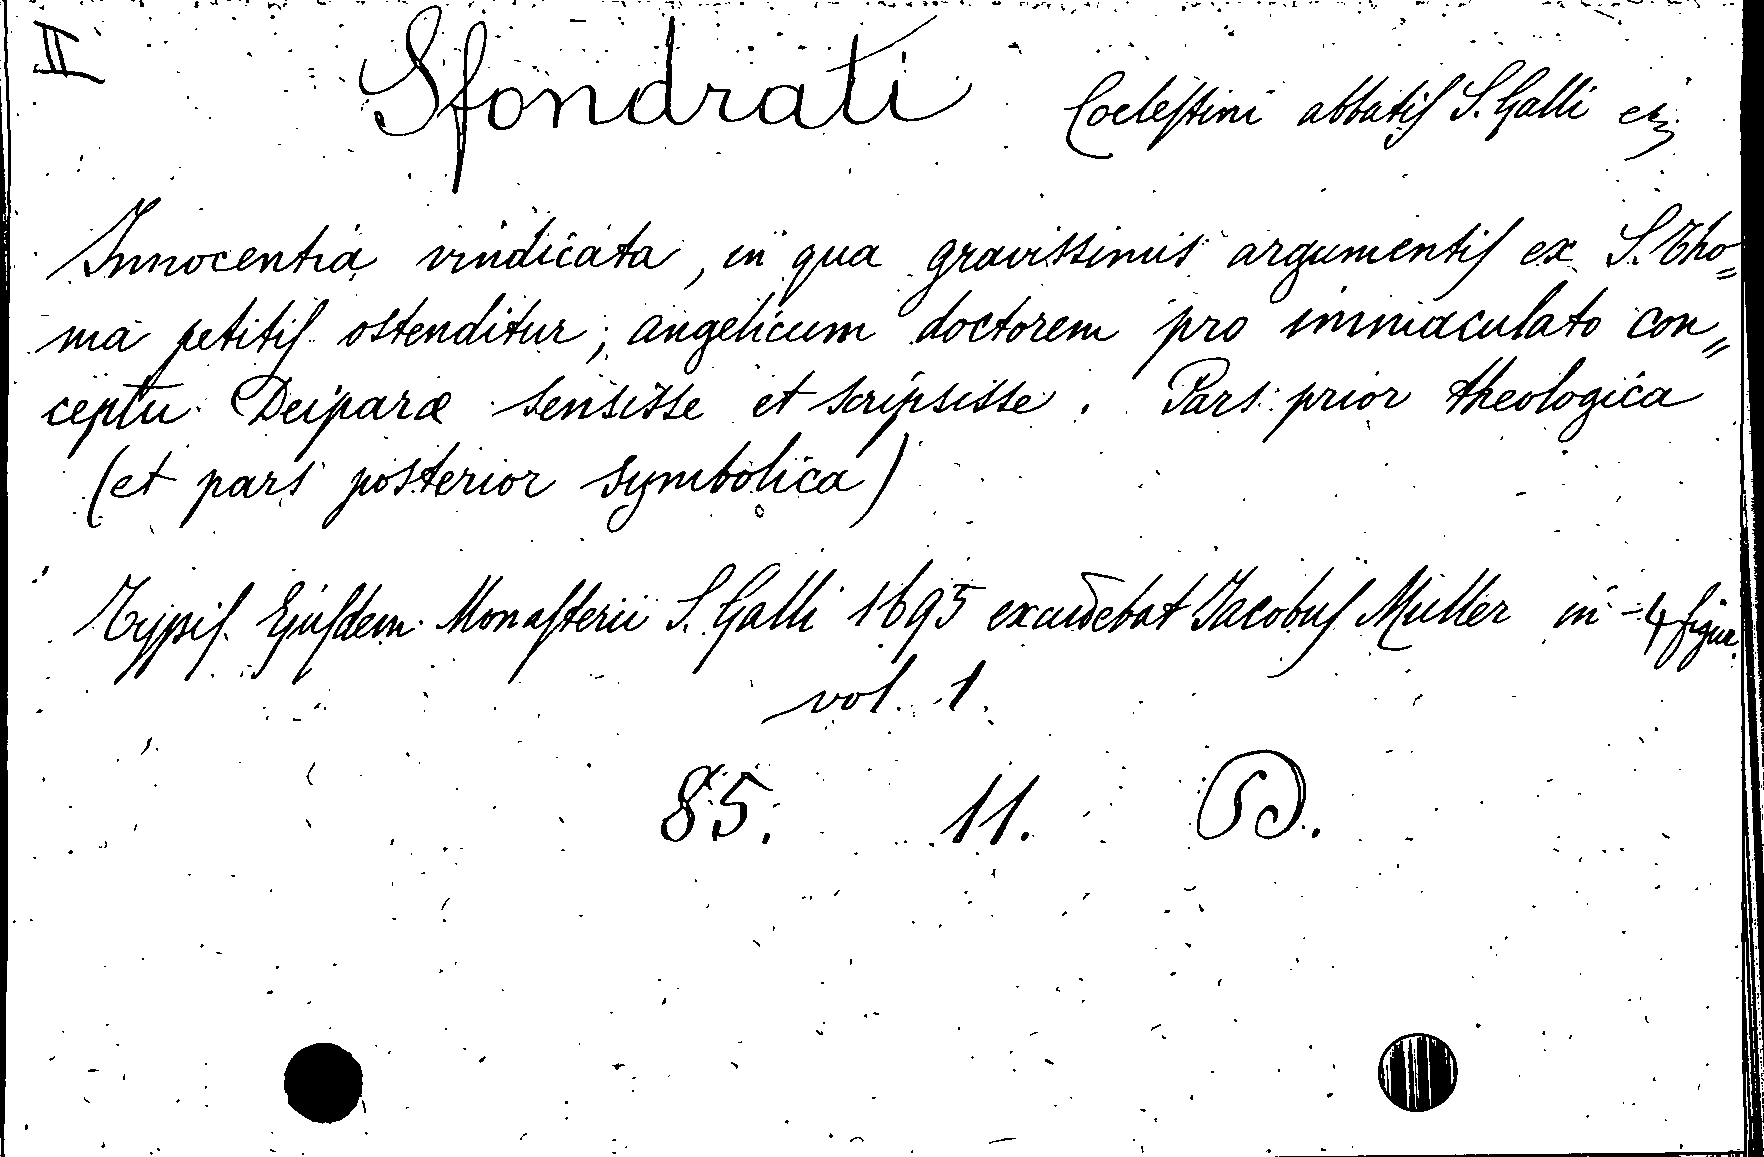 II
Sfondrati Coelestini abbatis S. Galli etz
Innocentia vindicata, in qua gravissimis argumentis ex S. Tho„
ma petitis ostenditur, angelicum doctorem pro immaculato con„
ceptu Deiparæ sensisse et scripsisse. Pars prior theologica
(et pars posterior symbolica)
Typis Ejusdem Monasterii S. Galli 1695 excudebat Jacobus Müller in-4 figur.
vol. 1.
85. 11.